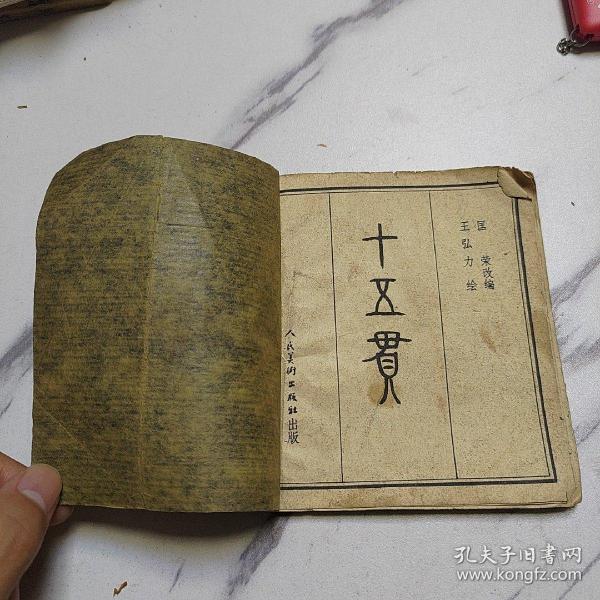 匡荣改编
王弘力绘
十五贯
人民美術出版社出版
孔夫子旧书网
www.kongfz.com